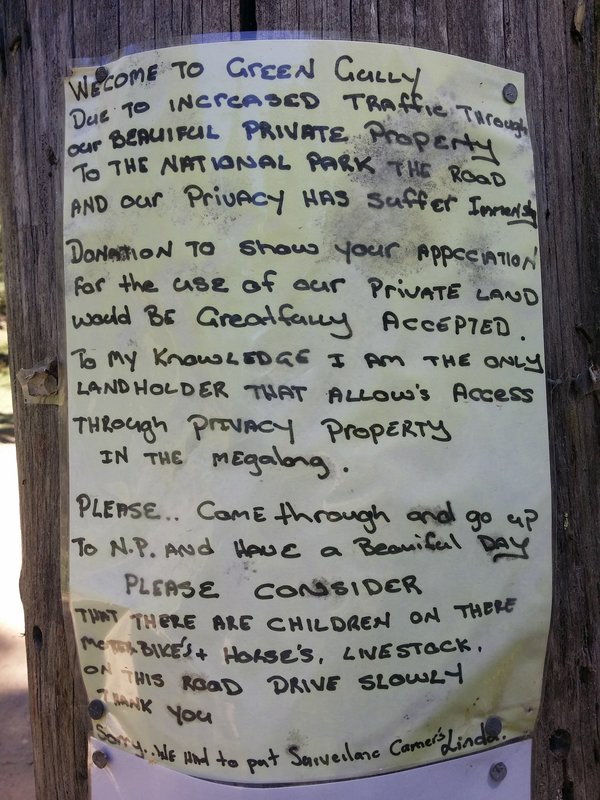 WECOME TO GREEN GULLY
DUE TO INCREASED TRAFFIC THROUGH
OUR BEAUIFUL PRIVATE PROPERTY
TO THE NATIONAL PARK THE ROAD
AND OUR PRIVACY HAS SUFFER IMMENSLY
DONATION TO SHOW YOUR APPCCIATION
FOR THE USE OF OUR PRIVATE LAND
WOULD BE GREATFULLY ACCEPTED.
TO MY KNOWLEDGE I AM THE ONLY
LANDHOLDER THAT ALLOW'S ACCESS
THROUGH PRIVACY PROPERTY
IN THE MEGALONG.
PLEASE.. COME THROUGH AND GO UP
TO N.P. AND HAVE A BEAUIFUL DAY
PLEASE CONSIDER
THAT THERE ARE CHILDREN ON THERE
MOTERBIKE'S + HORSE'S, LIVESTOCK,
ON THIS ROAD DRIVE SLOWLY
THANK YOU
Sorry.. WE HAD to put Surveilanc Camer's Linda.